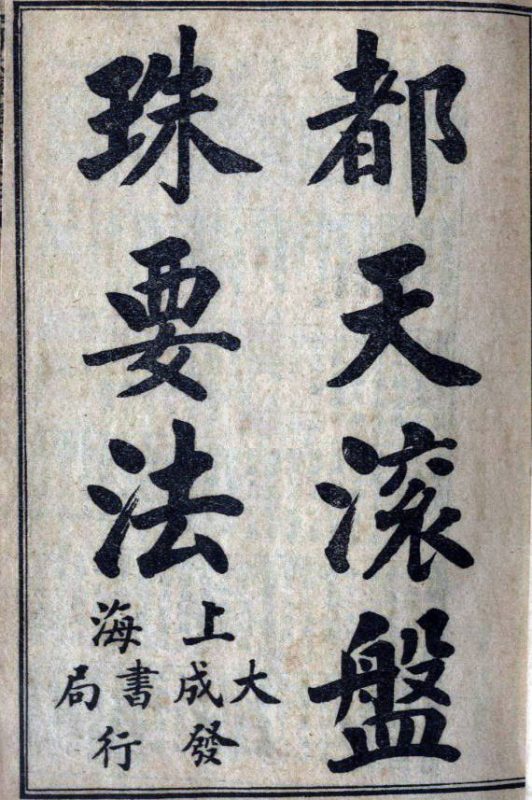 都天滚盤
珠要法
上海
大成書局
發行